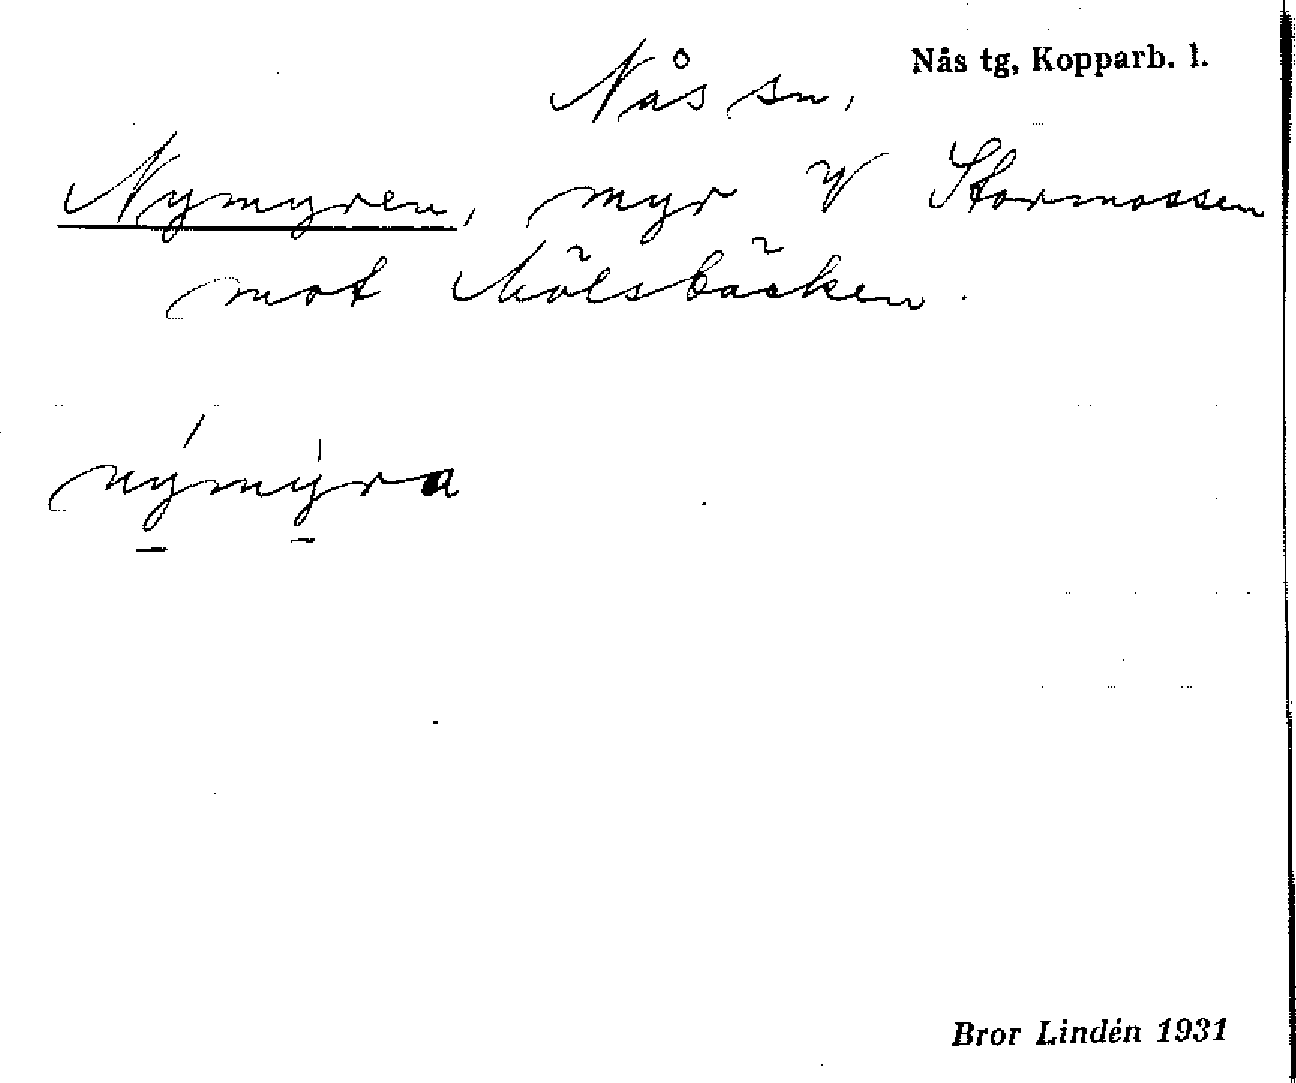 Nås tg, Kopparb. l.
Nås sn,
Nymyren, myr V Stormossen
mot Mölsbäcken.
nýmýra
Bror Lindén 1931